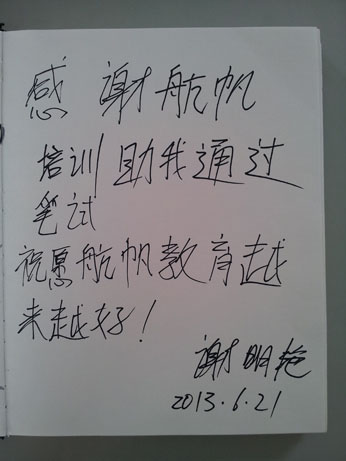 感谢航帆
培训助我通过
笔试
祝愿航帆教育越
来越好！
谢明艳
2013.6.21